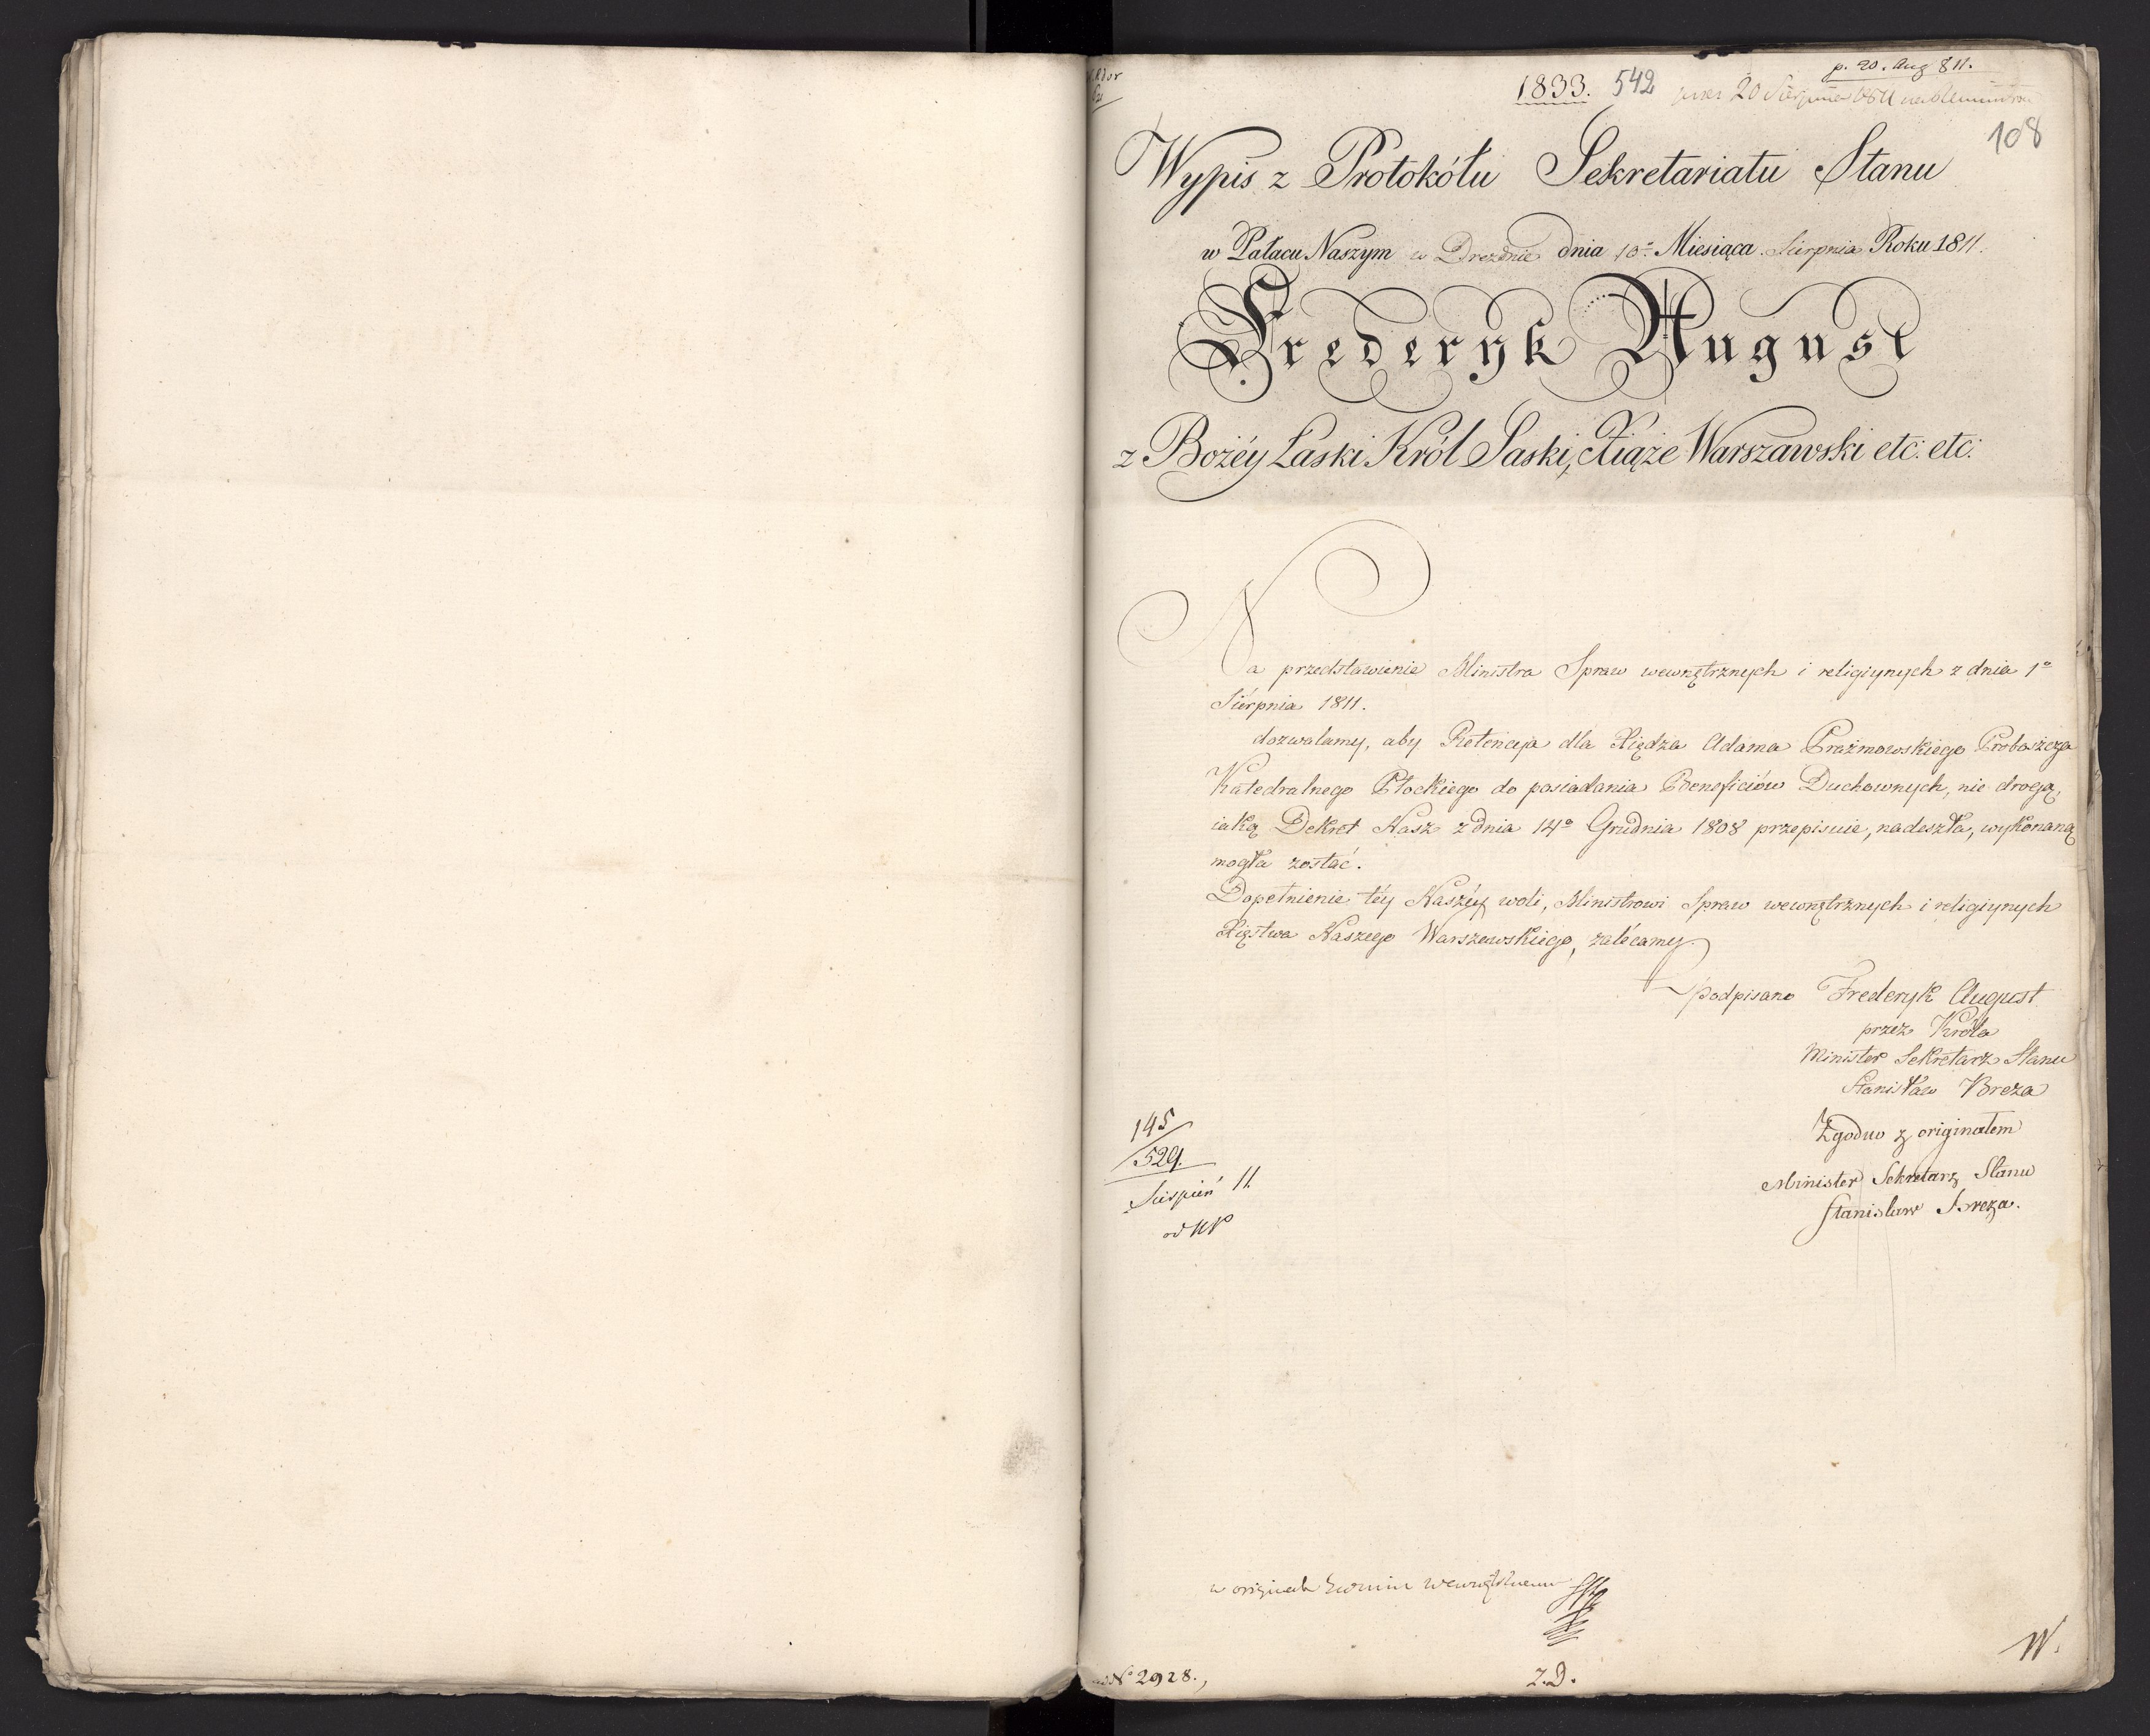 p. 20. Aug 811.
1833. 542 20 Sierpnia 1811
108
Wypis z Protokółu Sekretariatu Stanu
w Pałacu Naszym w Dreznie dnia 10º Miesiąca Sierpnia Roku 1811.
Frederyk August
z Bożéy Łaski Król Saski, Xiąże Warszawski etc: etc:
Na przedstawienie Ministra Spraw wewnętrznych i religiynych z dnia 1º
Sierpnia 1811.
dozwalamy, aby Retencyja dla Xiędza Adama Prażmowskiego Proboszcza
Katedralnego Płockiego do posiadania Beneficiów Duchownych, nie drogą,
iaką Dekret Nasz z dnia 14º Grudnia 1808 przepisuie, nadeszła, wykonaną
mogła zostać.
Dopełnienie téy Naszéy woli, Ministrowi Spraw wewnętrznych i religiynych
Xięstwa Naszego Warszawskiego, zalécamy.
podpisano Frederyk August
przez Króla
Minister Sekretarz Stanu
Stanisław Breza
Zgodno z originałem
Minister Sekretarz Stanu
Stanisław Breza.
145
529.
Sierpień 11.
w originale
W.
No 2928.,
Z.D.